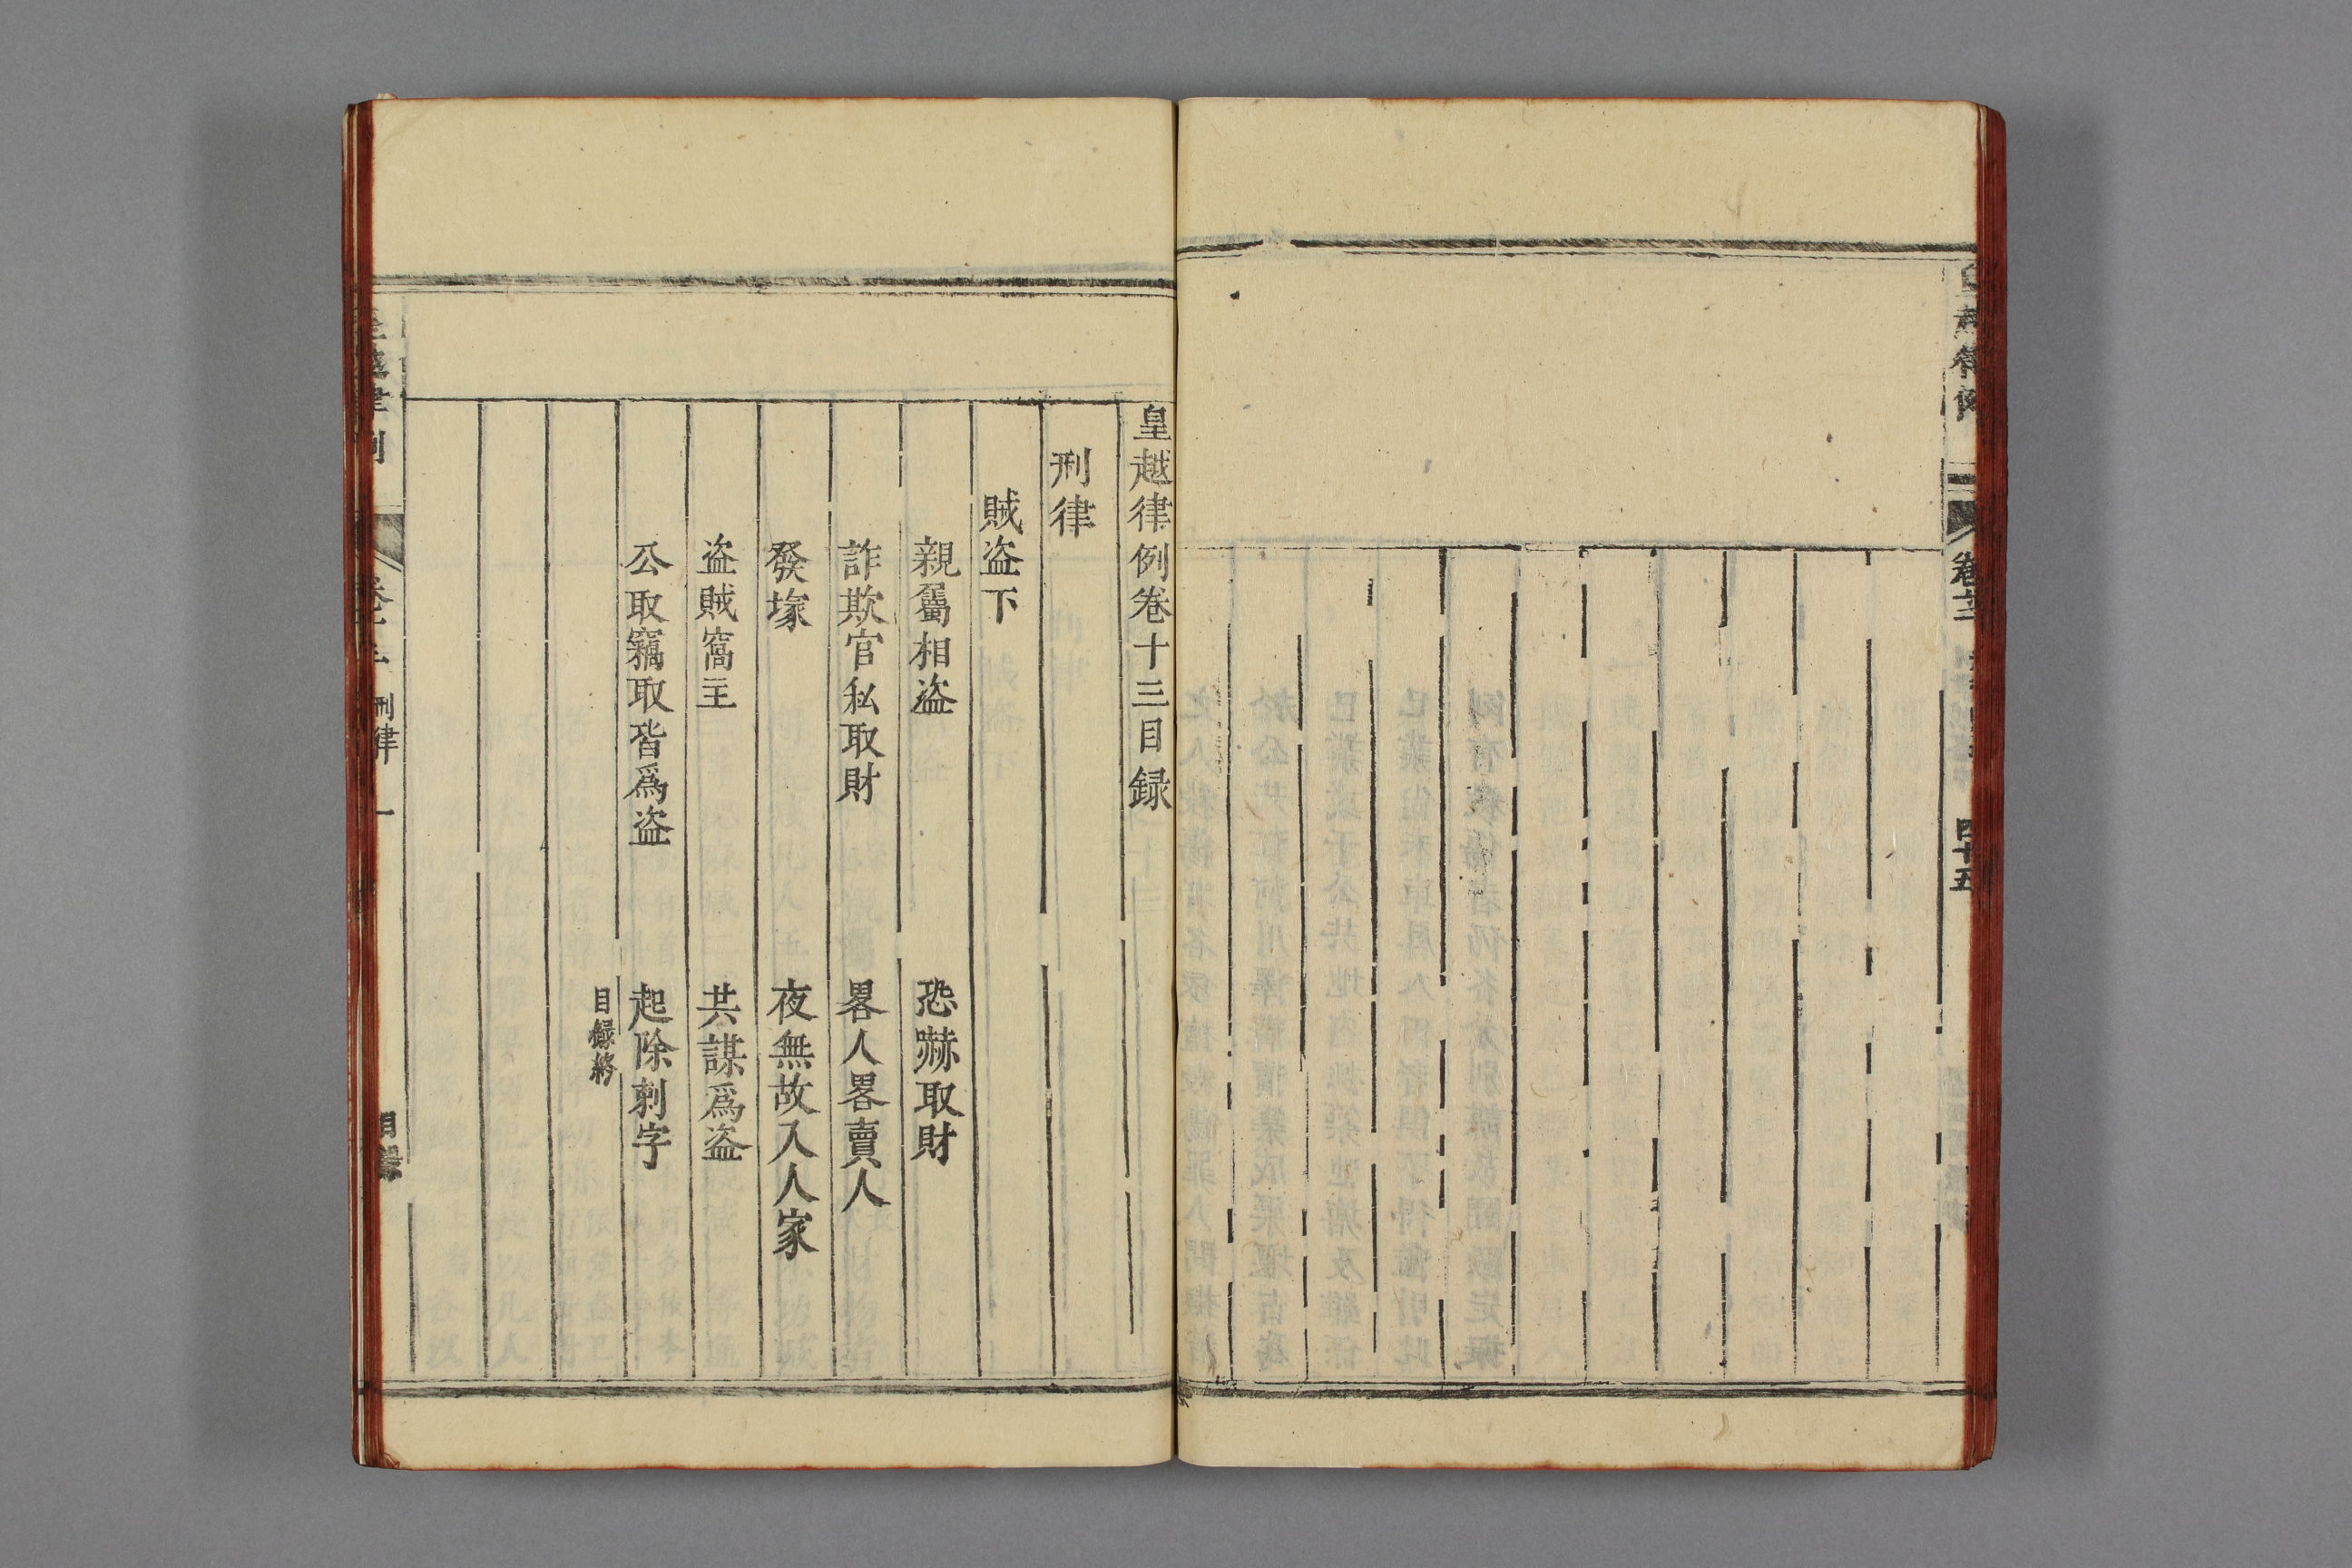 皇越律例
卷十二
四十五
皇越律例卷十三目録
刑律
賊盗下
親屬相盗
恐嚇取財
詐欺官私取財
畧人畧賣人
發塚
夜無故入人家
盗賊窩主
共謀爲盗
公取竊取皆爲盗
起除刺字
目録終
皇越律例
卷十三
刑律
一
目録